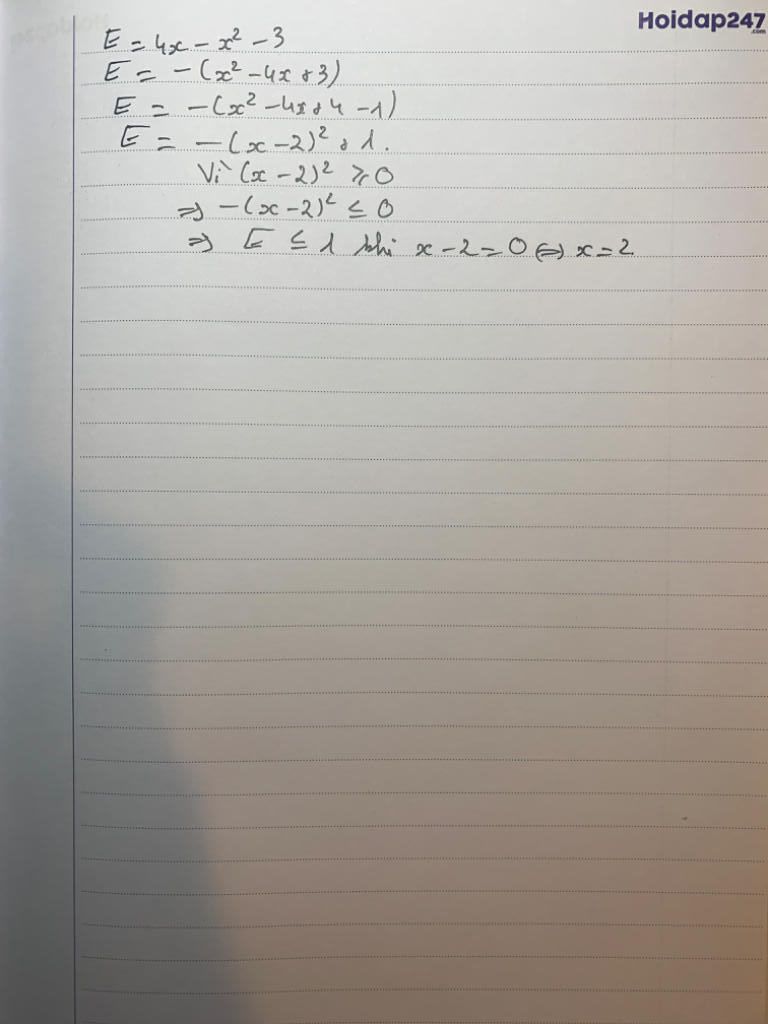 Hoidap247
.com
E = 4x - x² - 3
E = -(x² - 4x + 3)
E = -(x² - 4x + 4 - 1)
E = -(x - 2)² + 1.
Vì (x - 2)² ⩾ 0
=> -(x - 2)² ≤ 0
=> E ≤ 1 khi x - 2 = 0 <=> x = 2